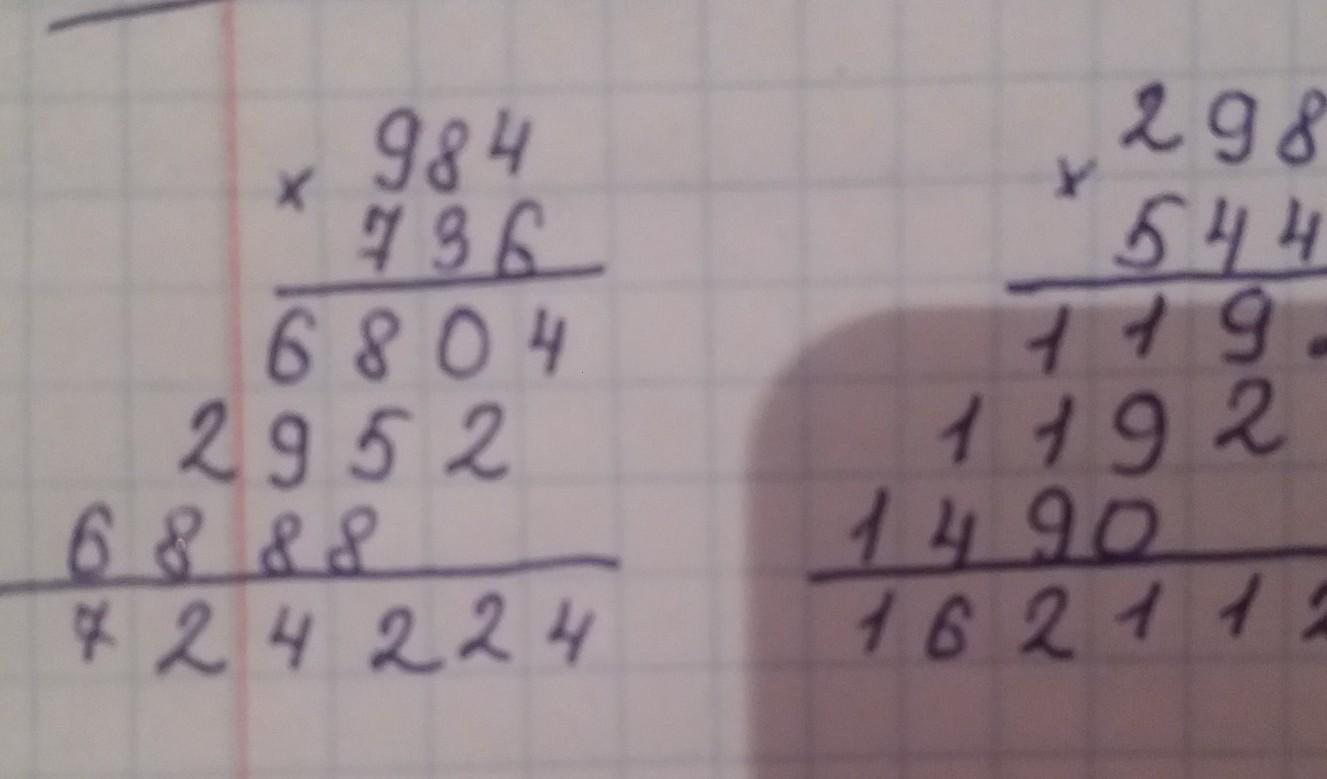 984
× 736
6804
2952
6888
724224
298
× 544
119
1192
1490
16211